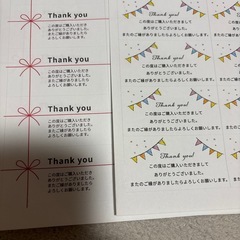 Thank you
この度はご購入いただき
ありがとうございました。
またご縁がありましたら
よろしくお願いします。
Thank you
この度はご購入いただき
ありがとうございました。
またご縁がありましたら
よろしくお願いします。
Thank you
この度はご購入いただき
ありがとうございました。
またご縁がありましたら
よろしくお願いします。
Thank you
この度はご購入いただき
ありがとうございました。
またご縁がありましたら
よろしくお願いします。
Thank you!
この度はご購入いただきまして
ありがとうございました。
またのご縁がありましたらよろしくお願いします。
Thank you!
この度はご購入いただきまして
ありがとうございました。
またのご縁がありましたらよろしくお願いします。
Thank you!
この度はご購入いただきまして
ありがとうございました。
またのご縁がありましたらよろしくお願いします。
Thank you!
この度はご購入いただきまして
ありがとうございました。
またのご縁がありましたらよろしくお願いします。